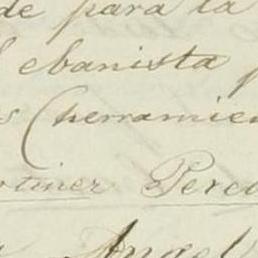 de para la
ebanista
(herramien
rtinez Perea
Angel